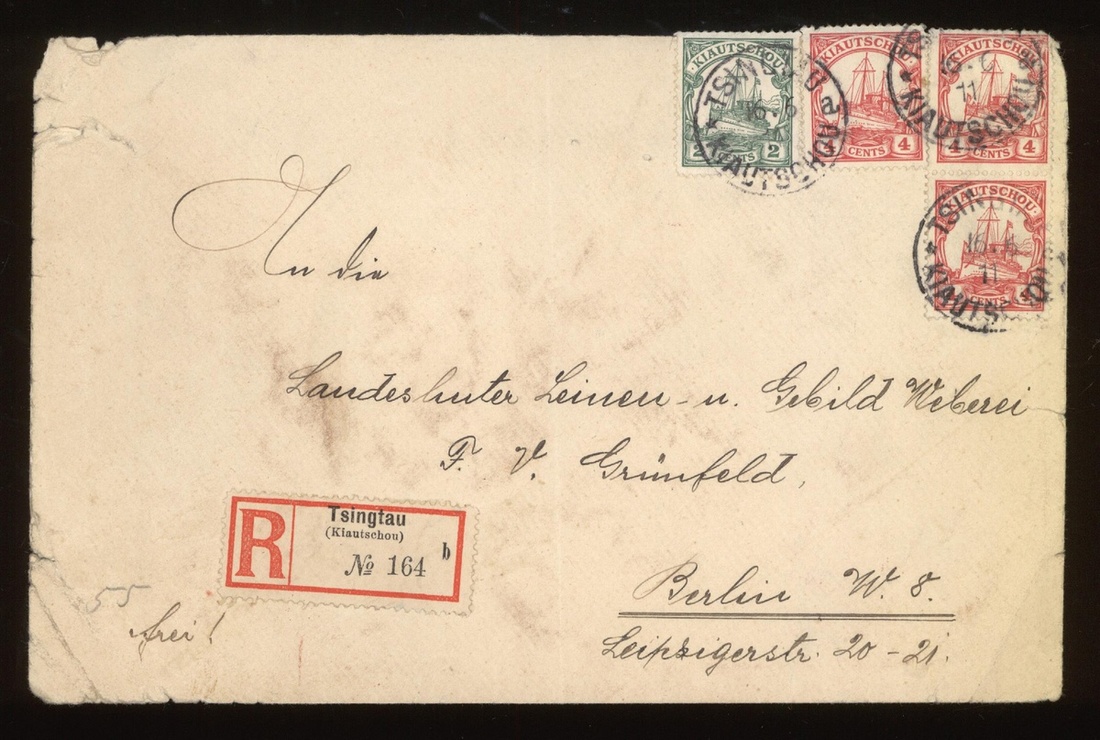 KIAUTSCHOU
2 CENTS 2
KIAUTSCHOU
4 CENTS 4
KIAUTSCHOU
4 CENTS 4
KIAUTSCHOU
CENTS 4
KIAUTSCHOU
a
KIAUTSCHOU
11
TSINGTAU
16
11
KIAUTSCHOU
An die
Landeshuter Leinen- u. Gebild Weberei
F. V. Grünfeld,
Berlin W. 8.
Leipzigerstr. 20-21.
R
Tsingtau
(Kiautschou)
b
№ 164
55
frei!